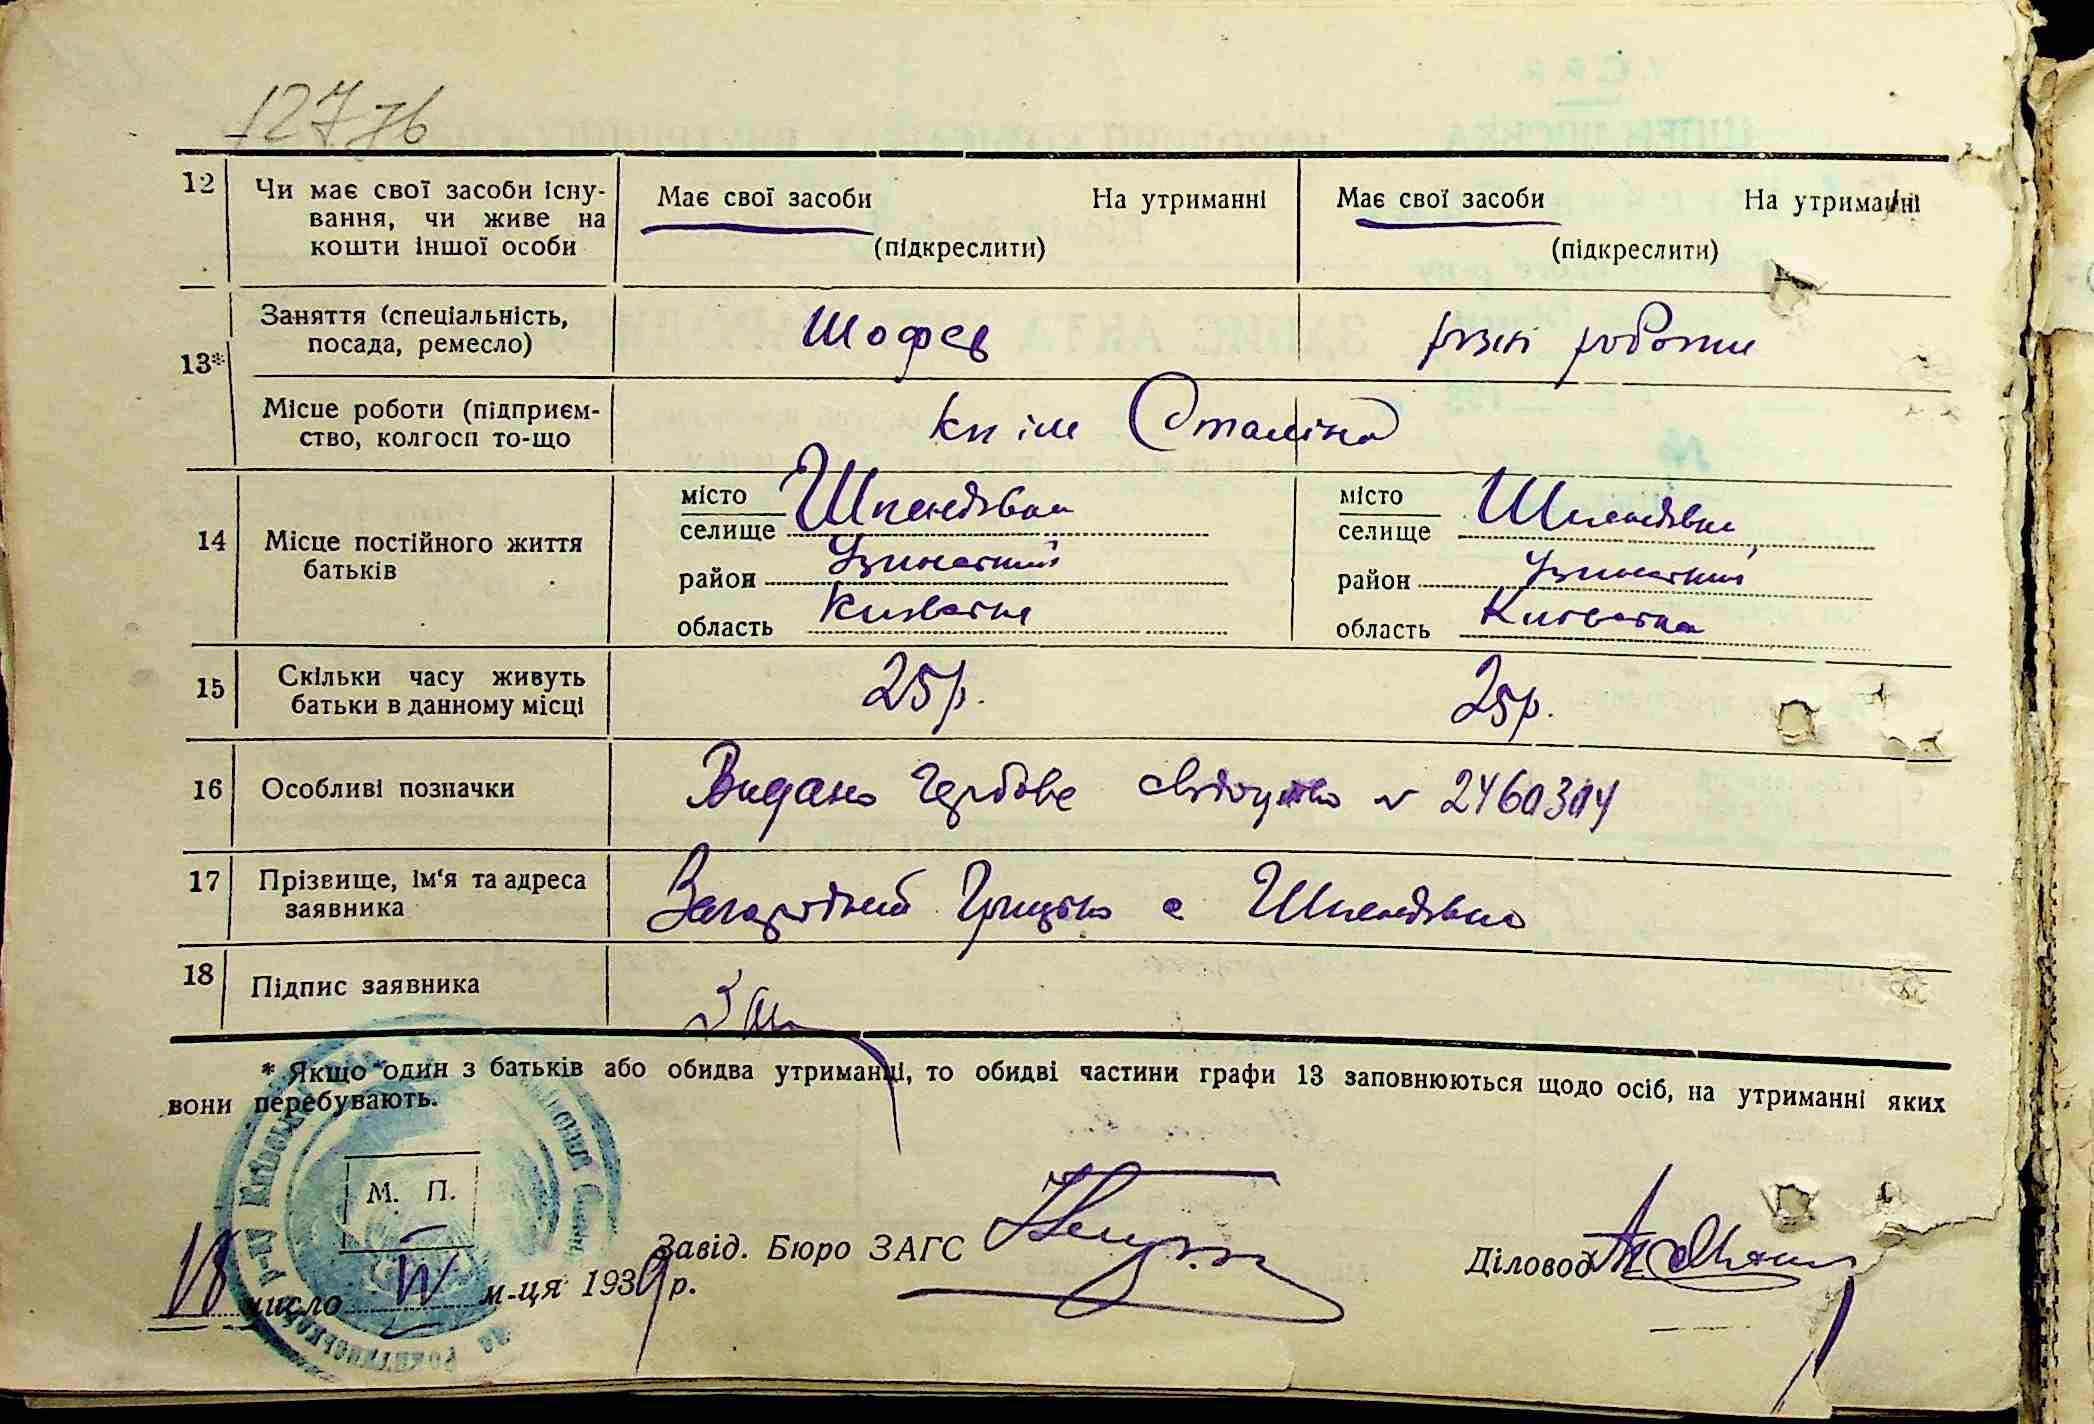 127зв
12 Чи має свої засоби існу-
вання, чи живе на
кошти іншої особи
Має свої засоби На утриманні
(підкреслити)
Має свої засоби На утриманні
(підкреслити)
13*
Заняття (спеціальність,
посада, ремесло)
Шофер
різні роботи
Місце роботи (підприєм-
ство, колгосп то-що
ім Сталіна
14 Місце постійного життя
батьків
місто
селище Шпендівка
район Узинський
область Київська
місто
селище Шпендівка
район Узинський
область Київська
15 Скільки часу живуть
батьки в данному місці
25р.
25р.
16 Особливі позначки
Видано Гербове свідоцтво № 2460304
17 Прізвище, ім'я та адреса
заявника
Загородній Грицько с Шпендівка
18 Підпис заявника
* Якщо один з батьків або обидва утриманці, то обидві частини графи 13 заповнюються щодо осіб, на утриманні яких
вони перебувають.
М. П.
Завід. Бюро ЗАГС
Діловод
18 число IV м-ця 1939 р.